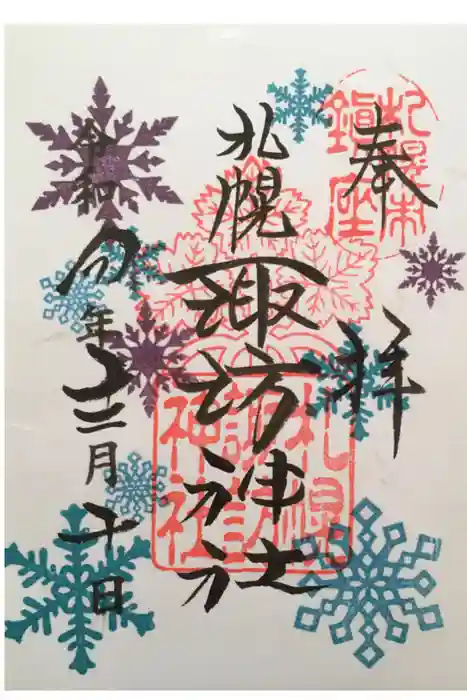 奉拝
札幌市
鎮座
札幌諏訪神社
札幌
諏訪
神社
令和四年十二月十日